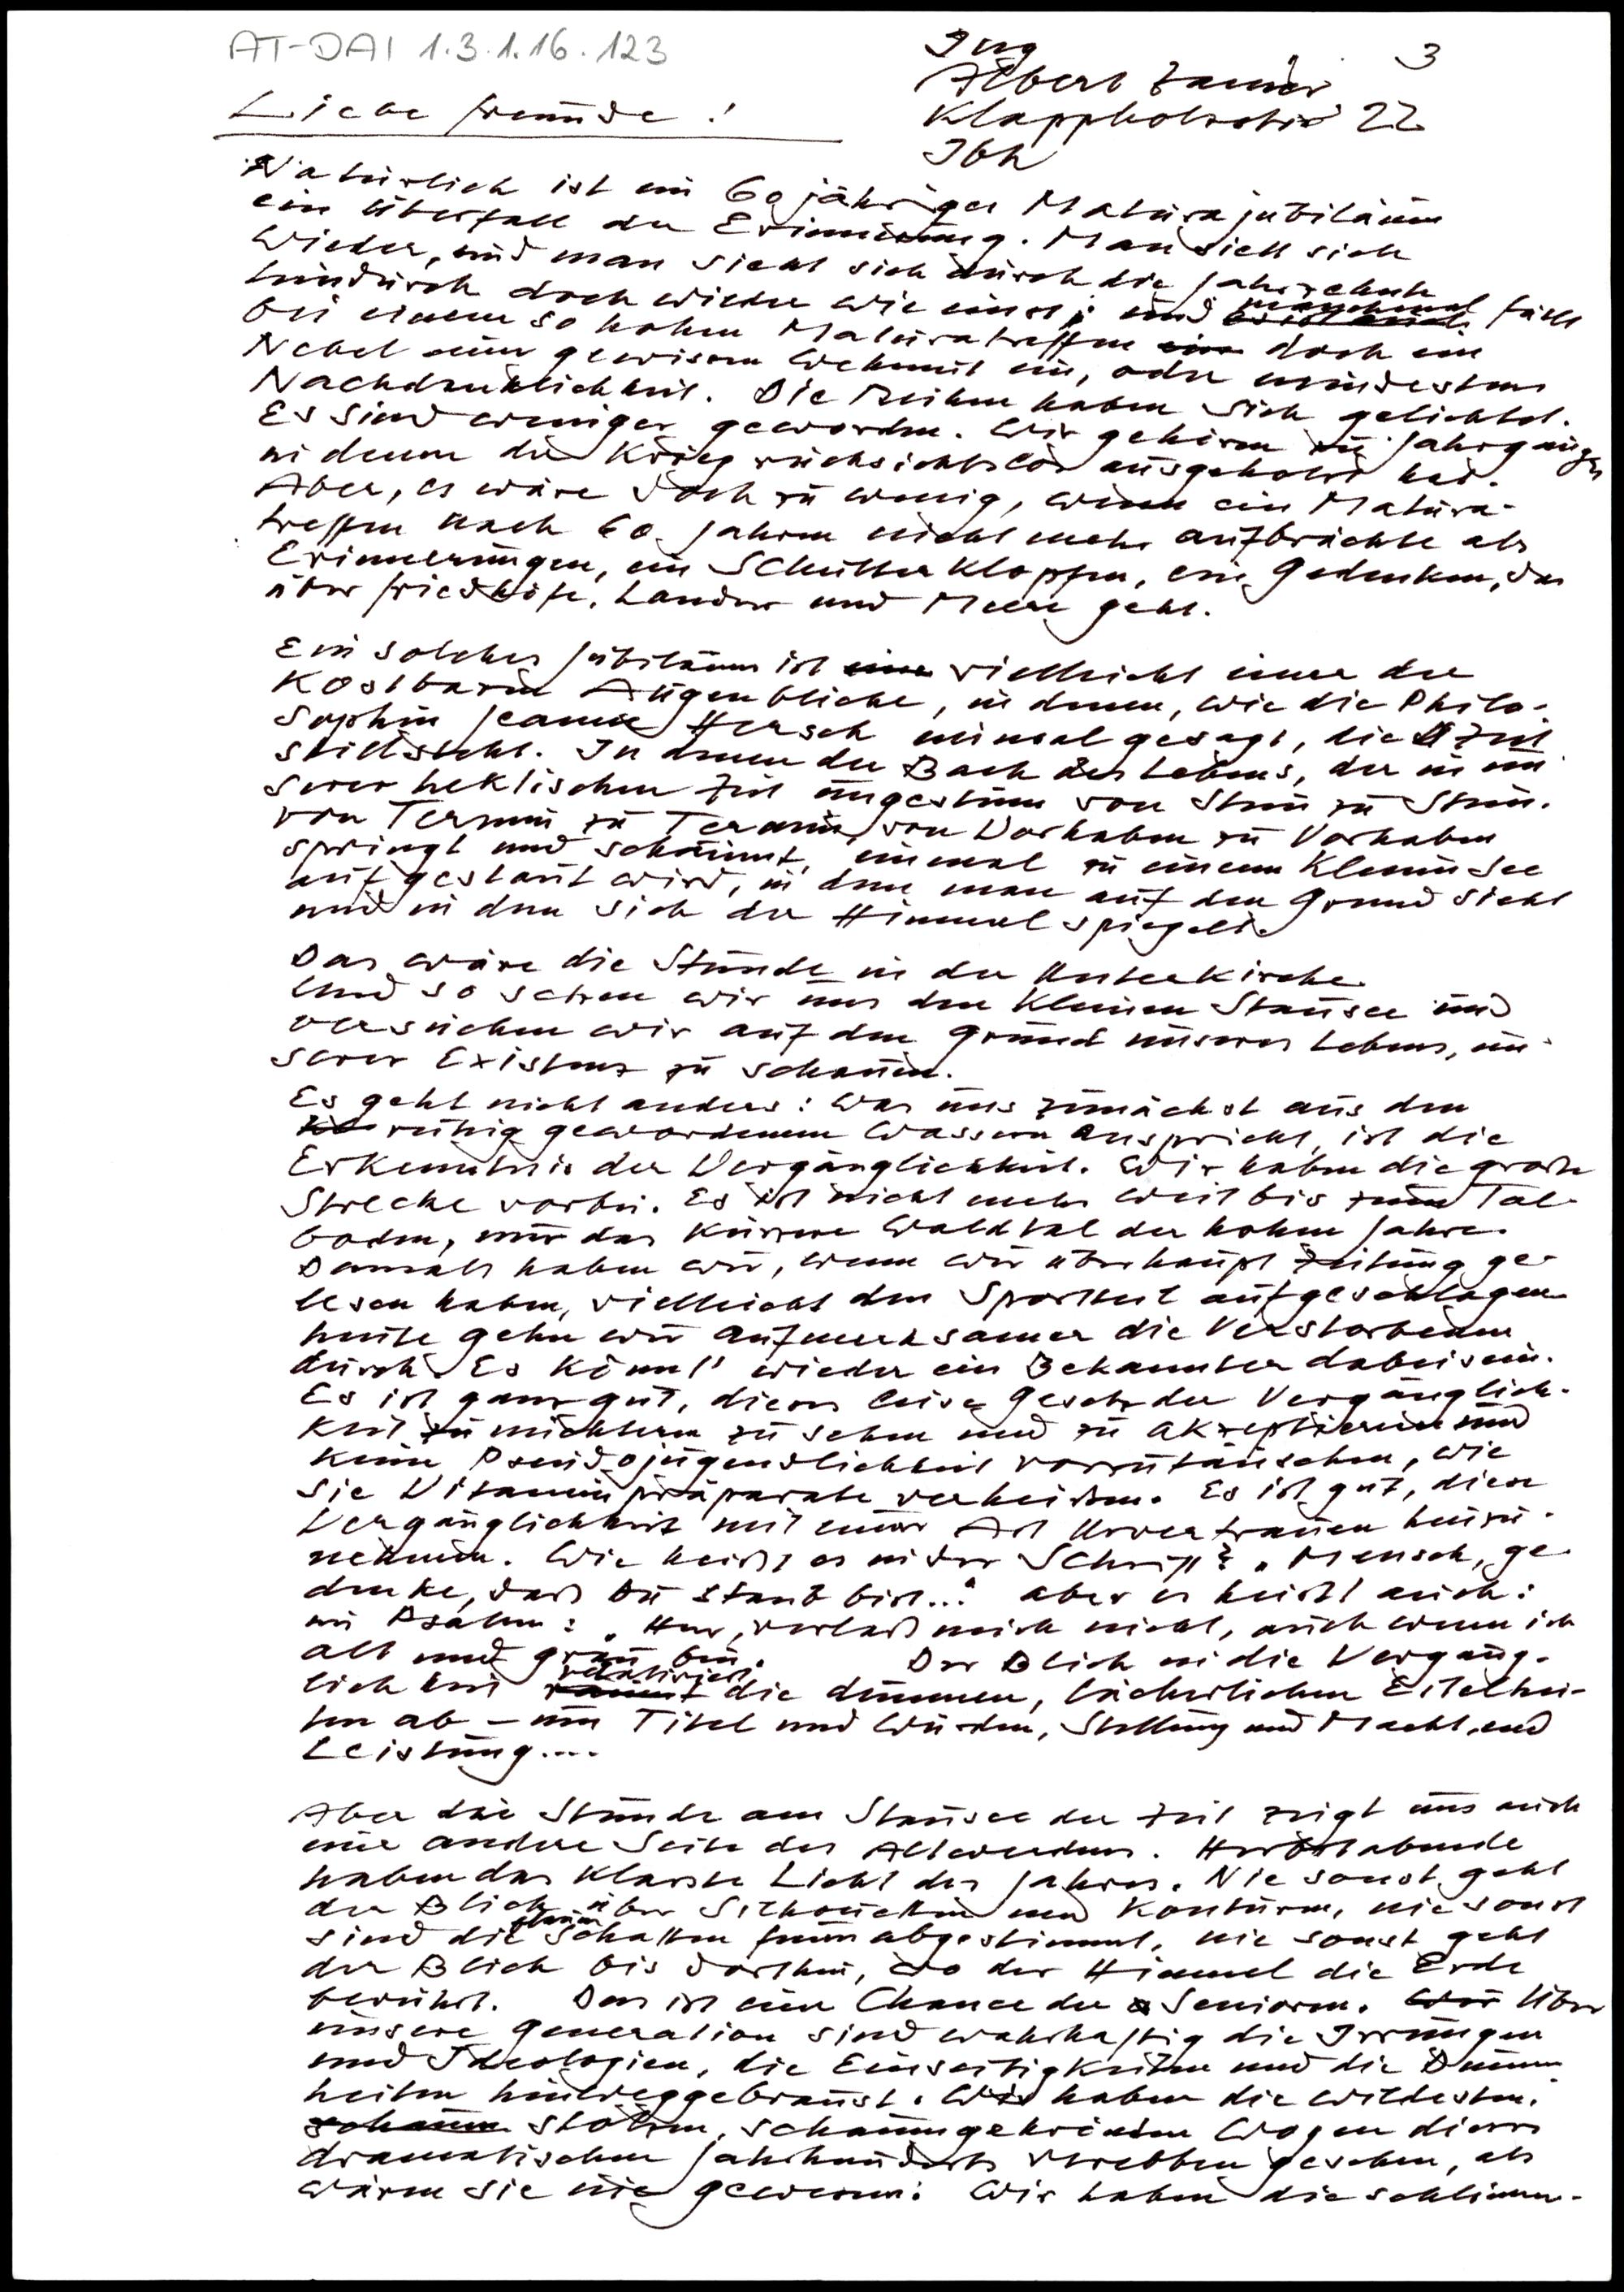 AT-DAI 1.3.1.16.123
3
Ing
Albert
22
Ibk
Liebe Freunde!
Natürlich ist ein 60 jähriges Maturajubiläum
ein Überfall der Erinnerung. Man sieht sich
wieder, und man sieht sich durch die Jahrzehnte
hindurch doch wieder wie einst; und manchmal fällt
bei einem so hohen Maturatreffen doch ein
Nebel einer gewissen Wehmut ein, oder mindestens
Nachdenklichkeit. Die Reihen haben sich gelichtet.
Es sind weniger geworden. Wir gehören zu Jahrgängen
in denen der Krieg rücksichtslos ausgeholzt hat.
Aber, es wäre doch zu wenig, wenn ein Matura-
treffen nach 60 Jahren nicht mehr aufbrächte als
Erinnerungen, ein Schulterklopfen, ein Gedenken, das
über Friedhöfe, Länder und Meere geht.
Ein solches Jubiläum ist vielleicht einer der
kostbaren Augenblicke, in denen, wie die Philo-
sophin Jeanne Hersch einmal gesagt, die Zeit
stillsteht. In denen der Bach des Lebens, der in un-
serer hektischen Zeit ungestüm von Stein zu Stein.
von Termin zu Termin, von Vorhaben zu Vorhaben
springt und schäumt, einmal zu einem kleinen See
aufgestaut wird, in dem man auf den Grund sieht
und in dem sich der Himmel spiegelt.
Das wäre die Stunde in der Unterkirche.
Und so setzen wir uns den kleinen Stausee und
versuchen wir auf den Grund unseres Lebens, un-
serer Existenz zu schauen.
Es geht nicht anders: was uns zunächst aus den
ruhig gewordenen Wassern anspricht, ist die
Erkenntnis der Vergänglichkeit. Wir haben die große
Strecke vorbei. Es ist nicht mehr weit bis zum Tal-
boden, nur das kürzere Waldtal der hohen Jahre.
Damals haben wir, wenn wir überhaupt Zeitung ge-
lesen haben, vielleicht den Sportteil aufgeschlagen
heute gehn wir aufmerksamer die Verstorbenen
durch. Es könnt' wieder ein Bekannter dabei sein.
Es ist ganz gut, dieses leise Gesetz der Vergänglich-
keit zu nüchtern zu sehen und zu akzeptieren und
keine Pseudojugendlichkeit vorzutäuschen, wie
sie Vitaminpräparate verheißen. Es ist gut, diese
Vergänglichkeit mit einer Art Urvertrauen hinzu-
nehmen. Wie heißt es in der Schrift? „Mensch, ge-
denke, daß Du Staub bist..." aber es heißt auch:
im Psalm: „Herr, verlaß mich nicht, auch wenn ich
alt und grau bin. Der Blick in die Vergäng-
lichkeit relativiert die dummen, lächerlichen Eitelkei-
ten ab – um Titel und Würden, Stellung und Macht, und
Leistung....
Aber die Stunde am Stausee der Zeit zeigt uns auch
eine andere Seite des Altwerdens. Herbstabende
haben das klarste Licht des Jahres. Nie sonst geht
der Blick über Silhouetten und Konturen, nie sonst
sind die Schatten abgestimmt, nie sonst geht
der Blick bis dorthin, wo der Himmel die Erde
berührt. Das ist eine Chance der Senioren. Über
unsere Generation sind wahrhaftig die Irrungen
und Ideologien, die Einseitigkeiten und die Dumm-
heiten hinweggebraust. Wir haben die wildesten.
stolzen, schaumgekrönten Wogen dieses
dramatischen Jahrhunderts verebben gesehen, als
wären sie nie gewesen: Wir haben die schlimm-